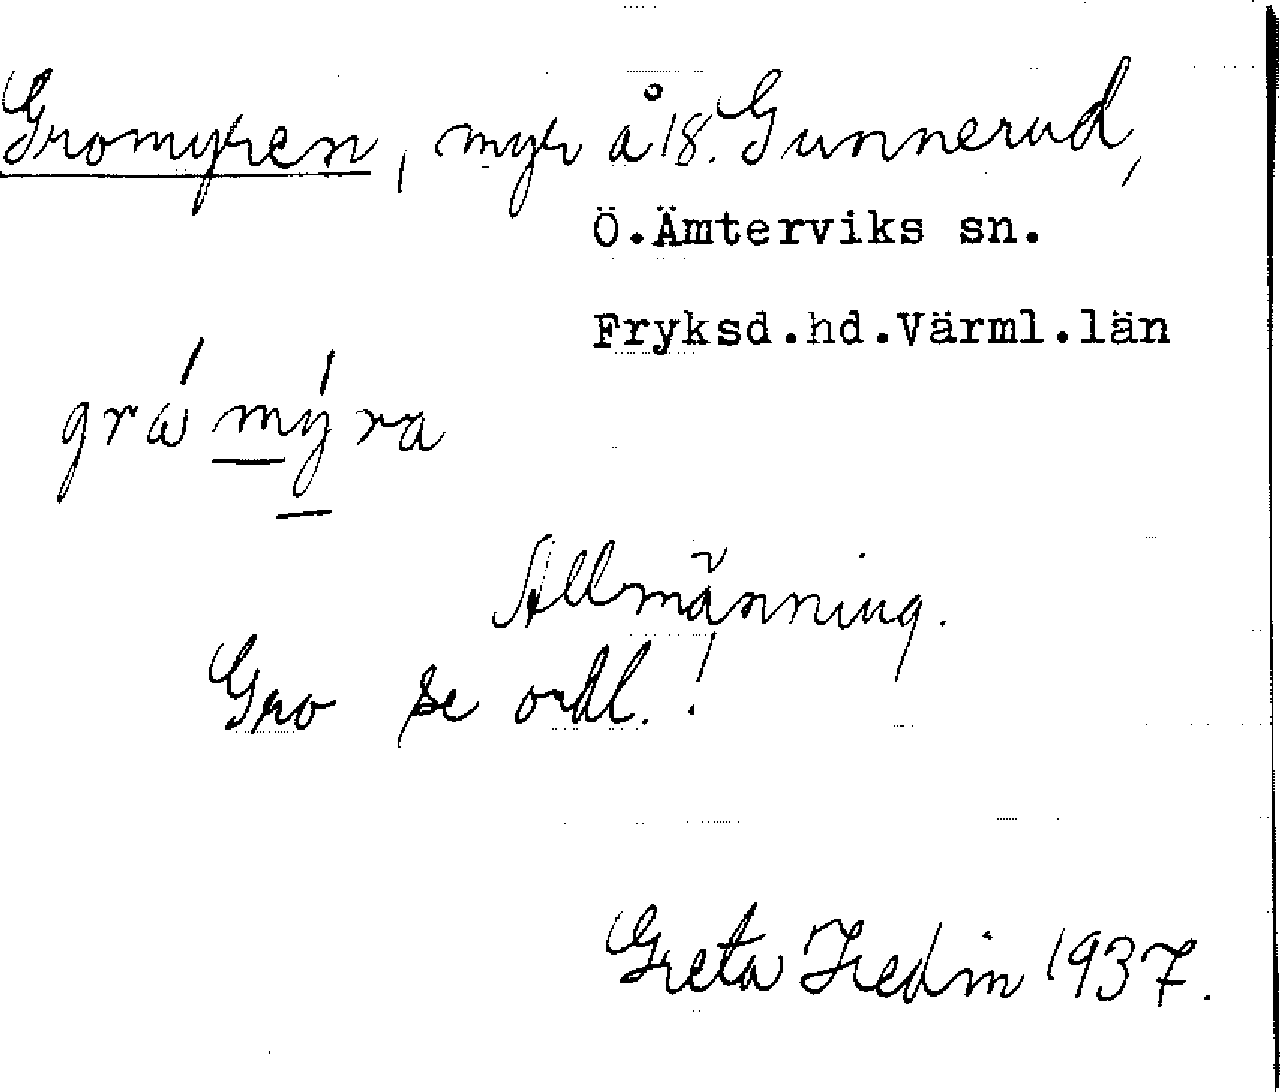 Gromyren, myr å 18. Gunnerud,
Ö.Ämterviks sn.
Fryksd.hd.Värml.län
grω´mý ra
Allmänning.
Gro se ordl.!
Greta Hedin 1937.